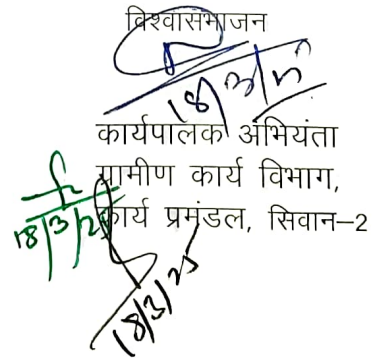 विश्वासभाजन
18/3/25
कार्यपालक अभियंता
ग्रामीण कार्य विभाग,
कार्य प्रमंडल, सिवान–2
18/3/25
18/3/25